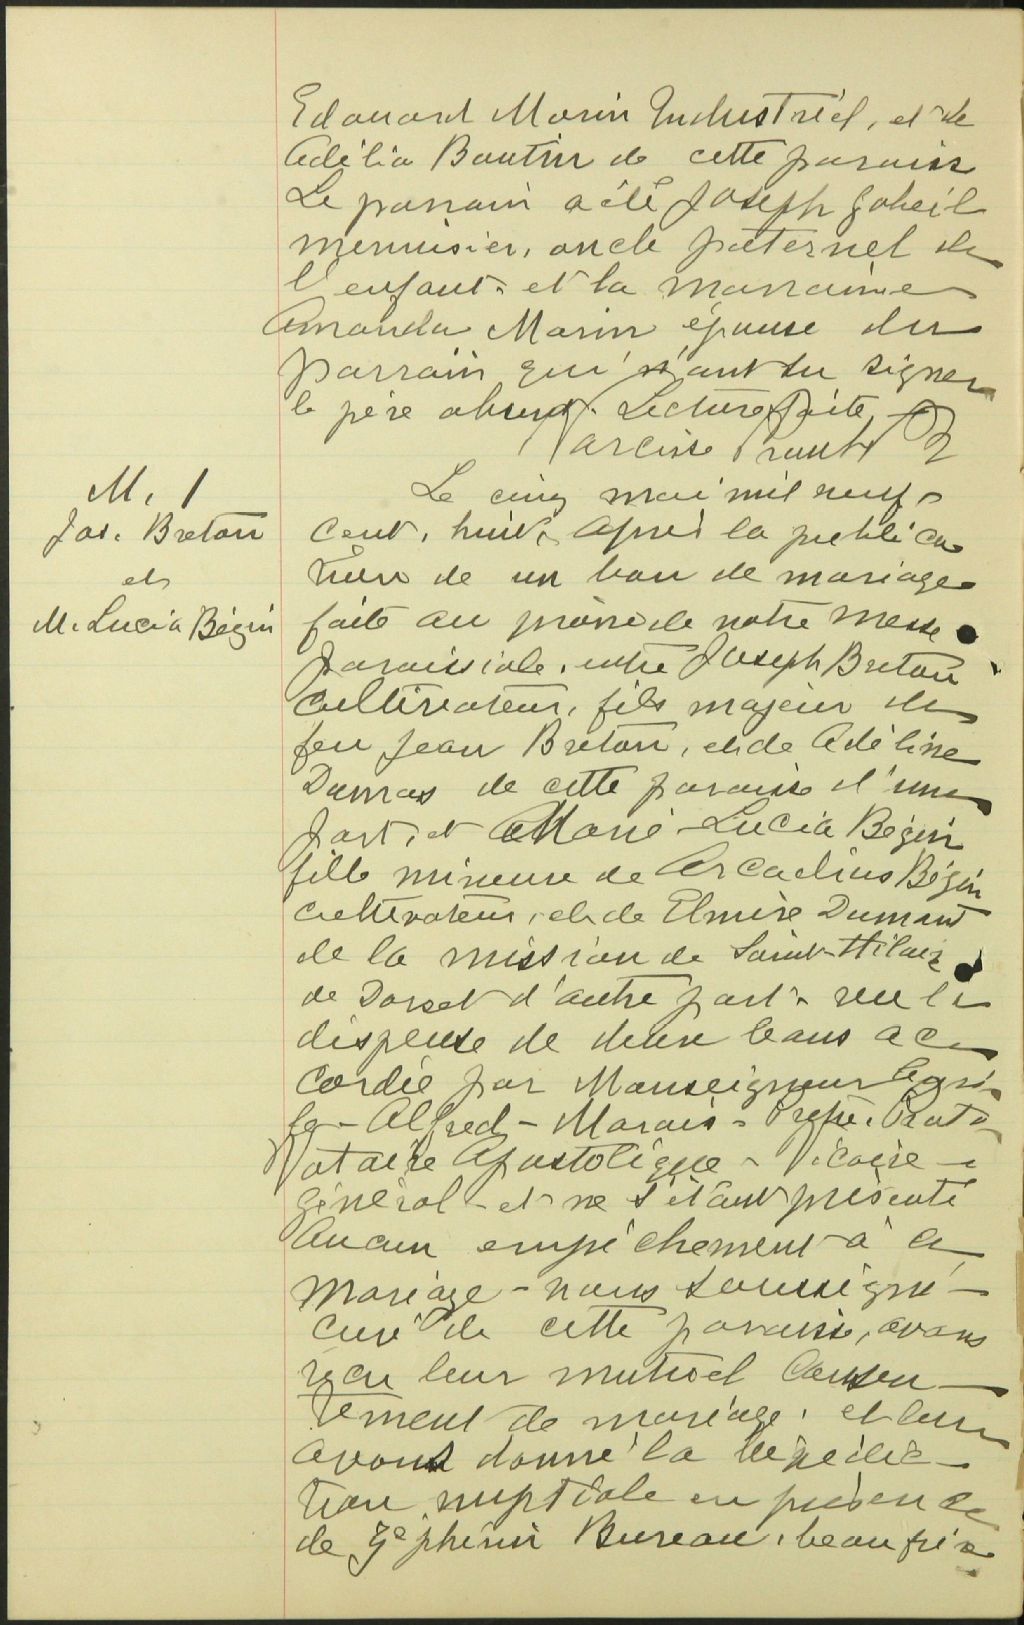 Edouard Morin Industriel, et de
Adélia Boutin de cette paroisse
Le parrain a été Joseph Goheil
menuisier, oncle paternel de
l'enfant et la marraine
Amanda Morin épouse du
parrain qui ont su signer
le père absent. Lecture faite
Narcisse Proulx Ptr
M. 1
Jos. Breton
et
M. Lucia Bégin
Le cinq mai mil neuf
cent, huit, après la publica
tion de un ban de mariage
faite au prône de notre messe
paroissiale, entre Joseph Breton
cultivateur, fils majeur de
feu Jean Breton, et de Adéline
Dumas de cette paroisse d'une
part, et Marie-Lucia Bégin
fille mineure de Arcadius Bégin
cultivateur, et de Elmire Dumont
de la mission de Saint-Hilaire
de Dorset d'autre part. vu la
dispense de deux bans ac
cordée par Monseigneur
Alfred-Marois Proto
Notaire Apostolique - Vicaire
général et ne s'étant présenté
Aucun empêchement à ce
mariage - nous soussigné
curé de cette paroisse, avons
reçu leur mutuel consen
tement de mariage, et leur
avons donné la bénédic
tion nuptiale en présence
de Zéphirin Bureau, beau frère